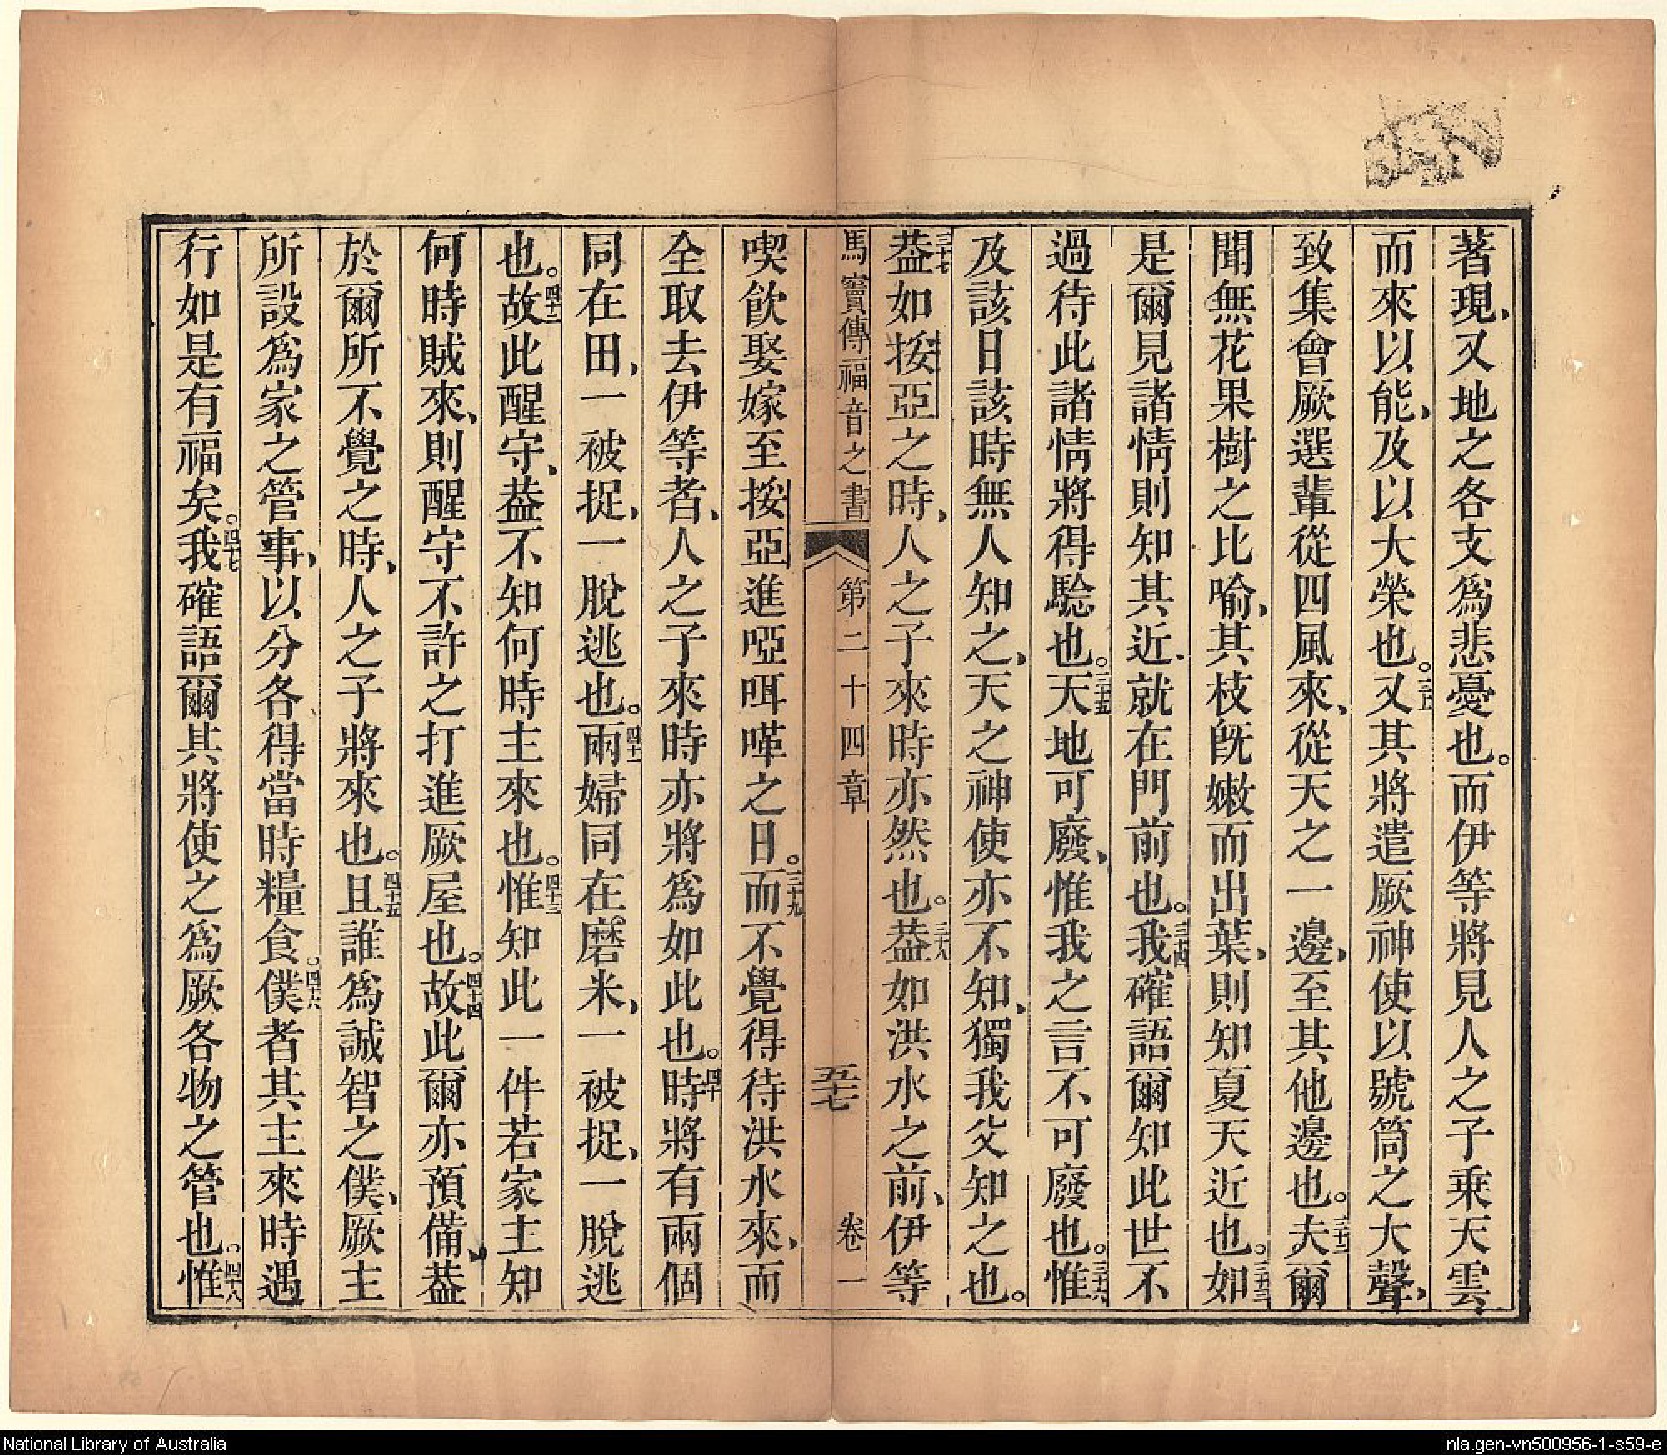 著現、又地之各支為悲憂也。而伊等將見人之子乘天雲、
而來以能、及以大榮也。三十一又其將遣厥神使以號筒之大聲、
致集會厥選輩從四風來、從天之一邊、至其他邊也。三十二夫爾
聞無花果樹之比喻、其枝既嫩而出葉、則知夏天近也。三十三如
是爾見諸情則知其近、就在門前也。三十四我確語爾知此世不
過待此諸情將得騐也。三十五天地可廢、惟我之言不可廢也。三十六惟
及該日該時無人知之、天之神使亦不知、獨我父知之也。
三十七葢如挼亞之時、人之子來時亦然也。三十八葢如洪水之前、伊等
馬竇傳福音之書 第二十四章 五十七 卷一
喫飲娶嫁至挼亞進啞咡嗶之日。三十九而不覺得待洪水來、而
全取去伊等者、人之子來時亦將為如此也。四十時將有兩個
同在田、一被捉、一脫逃也。四十一兩婦同在磨米、一被捉、一脫逃
也。四十二故此醒守、葢不知何時主來也。四十三惟知此一件若家主知
何時賊來、則醒守不許之打進厥屋也。四十四故此爾亦預備、葢
於爾所不覺之時、人之子將來也。四十五且誰為誠智之僕、厥主
所設為家之管事、以分各得當時糧食。四十六僕者其主來時遇
行如是有福矣。四十七我確語爾其將使之為厥各物之管也。四十八惟
National Library of Australia
nla.gen-vn500956-1-s59-e